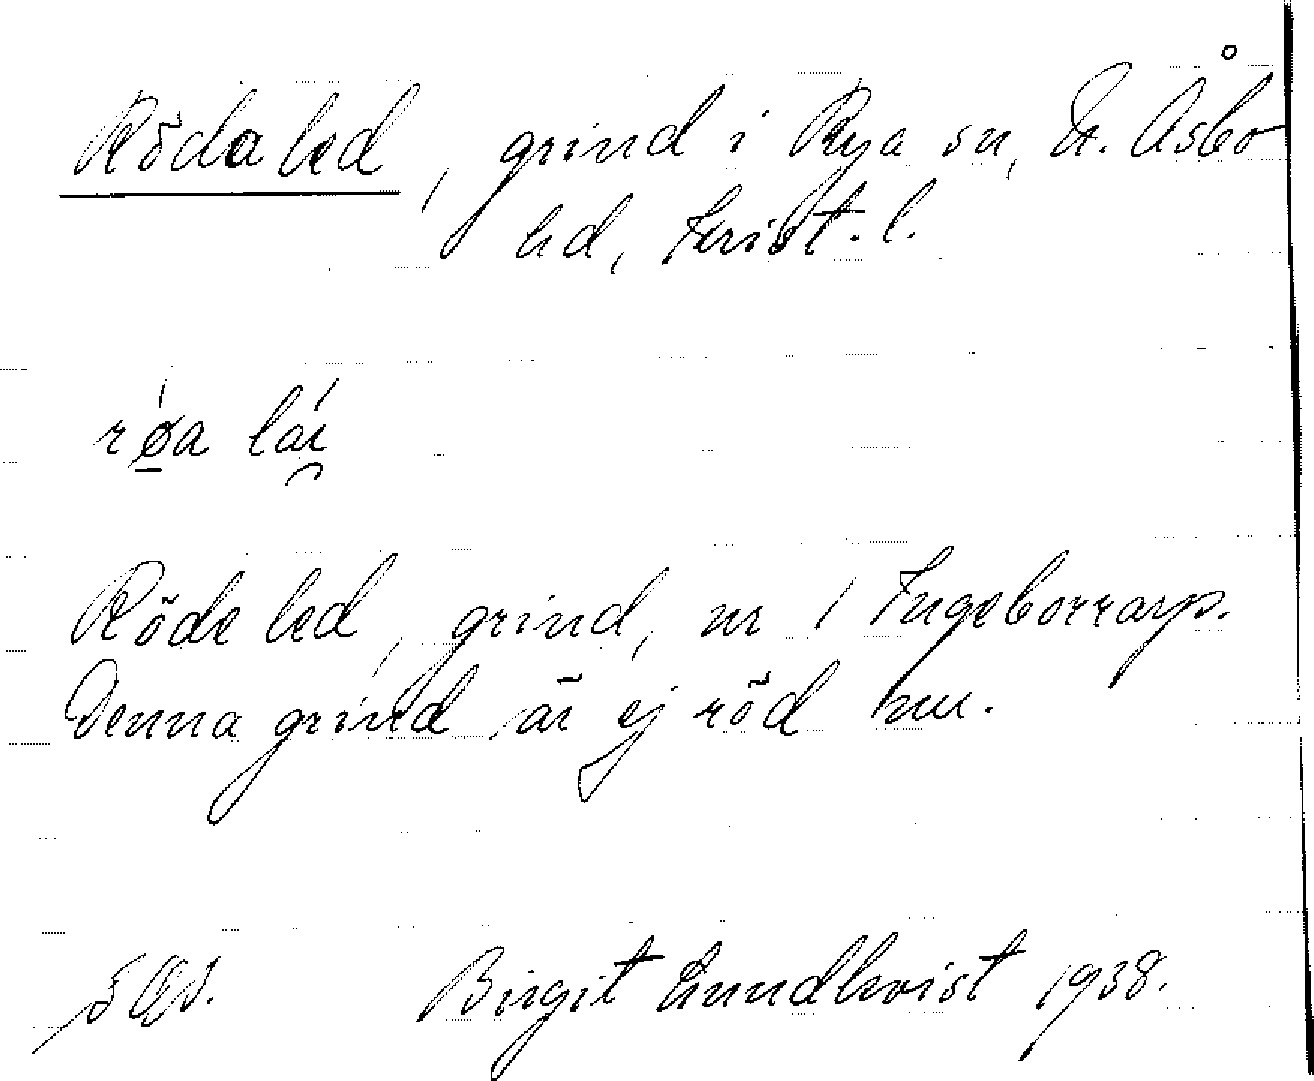 Röda led, grind i Rya sn, N. Åsbo
hd, Krist. l.
røa lái
Röda led, grind, nr 1 Ingeborrarp.
Denna grind är ej röd nu.
Birgit Lundkvist 1938.